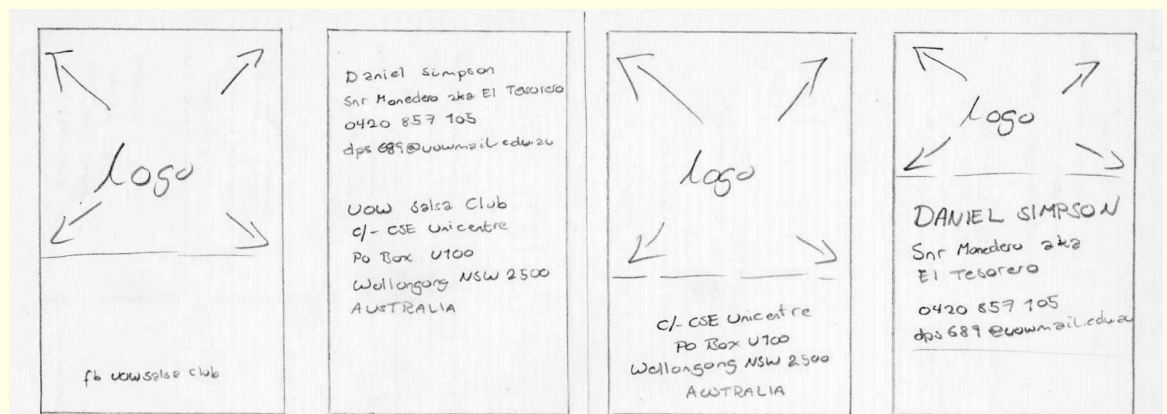 Logo
fb uow salsa club
Daniel Simpson
Snr Monedero aka El Tesorero
0420 857 105
dps689@uowmail.edu.au
UOW Salsa Club
C/- CSE Unicentre
Po Box U100
Wollongong NSW 2500
AUSTRALIA
Logo
C/- CSE Unicentre
Po Box U100
Wollongong NSW 2500
AUSTRALIA
Logo
DANIEL SIMPSON
Snr Monedero aka
El Tesorero
0420 857 105
dps689@uowmail.edu.au